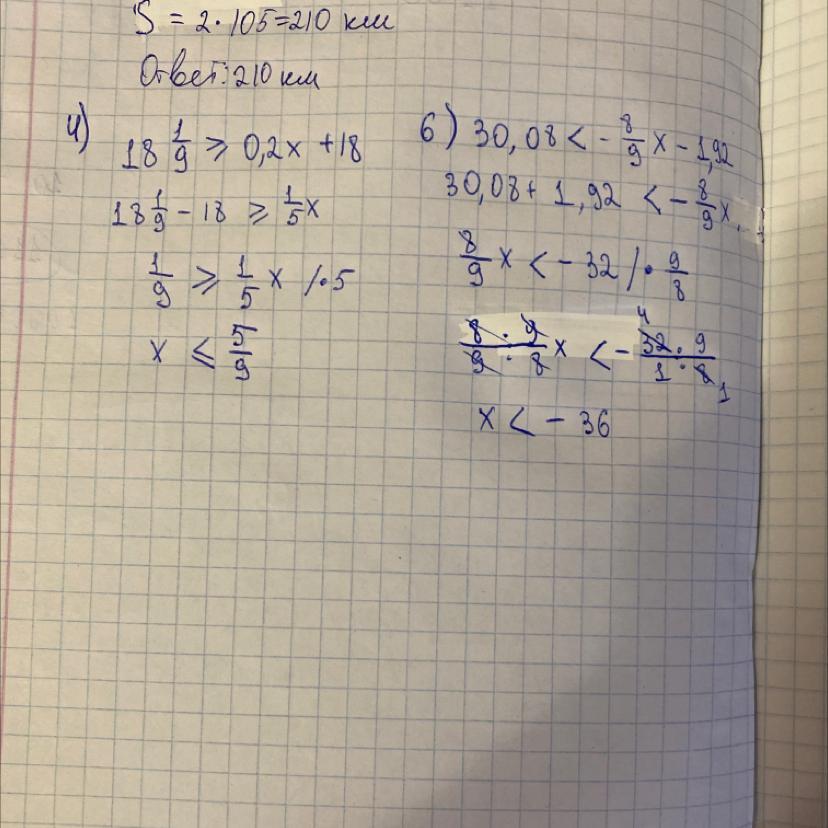 S = 2 · 105 = 210 км
Ответ: 210 км
4) 18 1/9 ⩾ 0,2x + 18
18 1/9 - 18 ⩾ 1/5 x
1/9 ⩾ 1/5 x /· 5
x ⩽ 5/9
6) 30,08 < - 8/9 x - 1,92
30,08 + 1,92 < - 8/9 x
8/9 x < - 32 /· 9/8
8 · 9 / 9 · 8 x < - 32 · 9 / 1 · 8
4
1
x < - 36